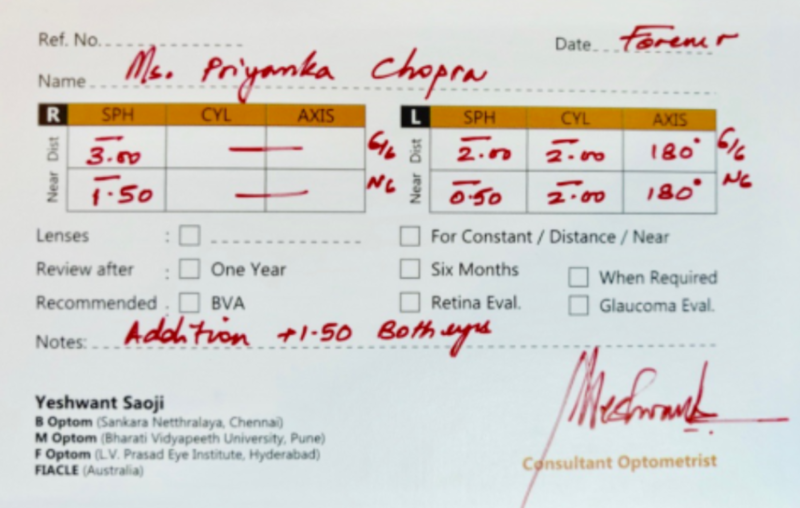 Ref. No.
Date Forever
Name Ms. Priyanka Chopra
R SPH CYL AXIS L SPH CYL AXIS
Dist -3.00 — 6/6 Dist -2.00 -2.00 180° 6/6
Near -1.50 — N6 Near -0.50 -2.00 180° N6
Lenses : For Constant / Distance / Near
Review after : One Year Six Months When Required
Recommended . BVA Retina Eval. Glaucoma Eval.
Notes: Addition +1.50 Both eyes
Meshwant
Yeshwant Saoji
B Optom (Sankara Netthralaya, Chennai)
M Optom (Bharati Vidyapeeth University, Pune)
F Optom (L.V. Prasad Eye Institute, Hyderabad)
FIACLE (Australia)
Consultant Optometrist